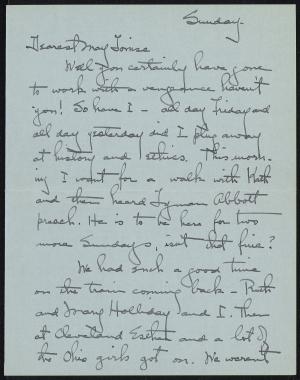 Sunday.
Dearest May Louise
Well you certainly have gone
to work with a vengeance haven't
you! So have I - all day Friday and
all day yesterday did I plug away
at history and ethics. This morn-
ing I went for a walk with Kath
and then heard Lyman Abbott
preach. He is to be here for two
more Sundays, isn't that fine?
We had such a good time
on the train coming back - Ruth
and Mary Holliday and I. Then
at Cleveland Esther and a lot of
the Ohio girls got on. We weren't